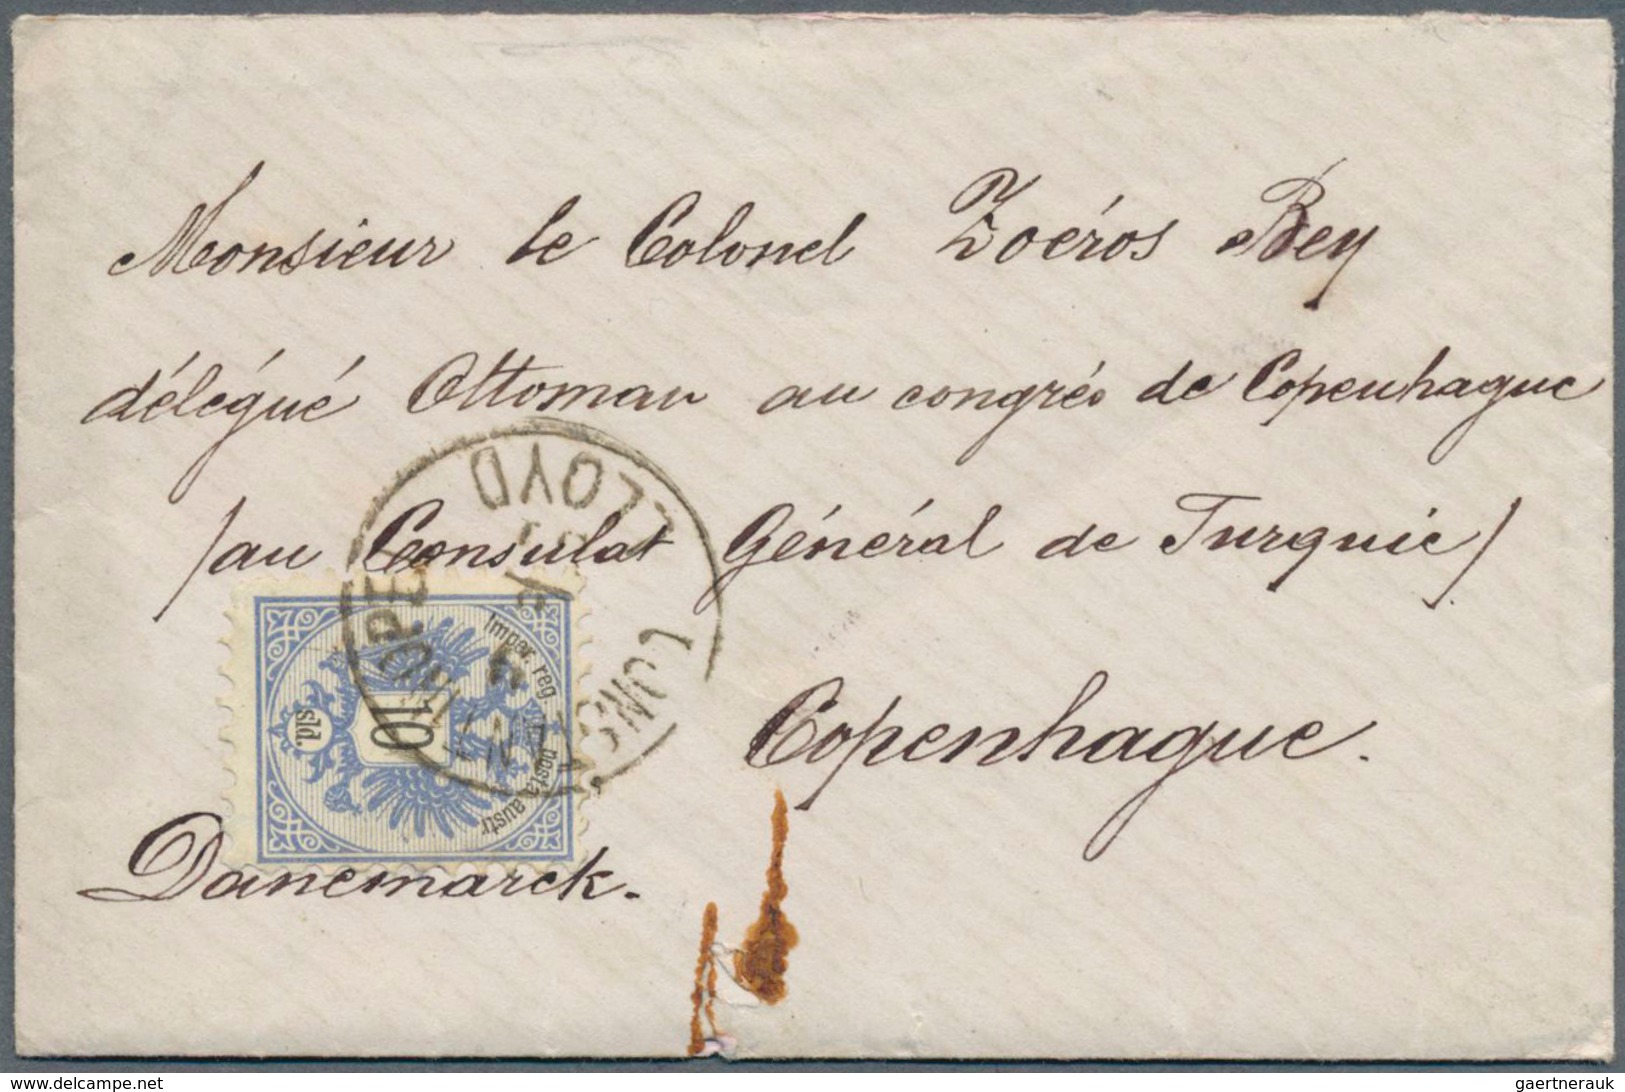 Monsieur le Colonel Zoéros Bey
délégué Ottoman au congrés de Copenhague
/au Consulat Général de Turquie/
Copenhague.
Danemarck.
LLOYD
Imper. reg. posta austr
10
sld.
delcampe.net
gaertnerauk